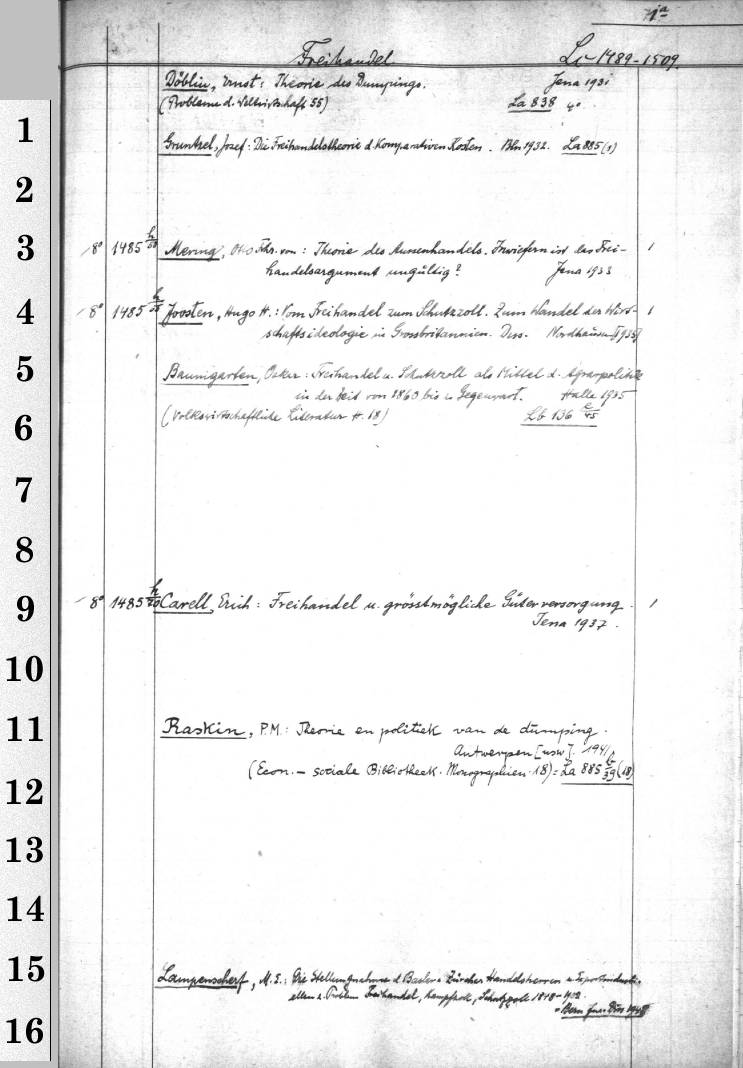 1a
Freihandel. Lv 1489-1509.
Döblin, Ernst: Theorie des Dumpings. Jena 1931
(Probleme d. Weltwirtschaft 55) La 838 4°
1
Gruntzel, Josef: Die Freihandelstheorie d. Komparativen Kosten. Bln 1932. La 885 (1)
2
3 8° 1485 h/ Mering, Otto Frhr. von: Theorie des Aussenhandels. Inwiefern ist das Frei- 1
handelsargument ungültig? Jena 1933
4 8° 1485 h/ Joosten, Hugo H.: Vom Freihandel zum Schutzzoll. Zum Wandel der Wirt- 1
schaftsideologie in Grossbritannien. Diss. Nordhausen 1935
5 Baumgarten, Oskar: Freihandel u. Schutzzoll als Mittel d. Agrarpolitik
in der Zeit von 1860 bis z. Gegenwart. Halle 1935
6 (Volkswirtschaftliche Literatur H. 18) Lb 136 e/45
7
8
9 8° 1485 h/70 Carell, Erich: Freihandel u. grösstmögliche Güterversorgung. 1
Jena 1937.
10
11 Raskin, P.M.: Theorie en politiek van de dumping.
Antwerpen [usw]. 1941
(Econ.-sociale Bibliotheek. Monographien. 18) = La 885 b/39 (18)
12
13
14
15 Lampenscherf, M. E.: Die Stellungnahme d. Basler u. Zürcher Handelsherren u. Exportindustri-
ellen z. Problem Freihandel, Kampfzoll, Schutzzoll 1848-1902.
= Bern jur. Diss 1948
16